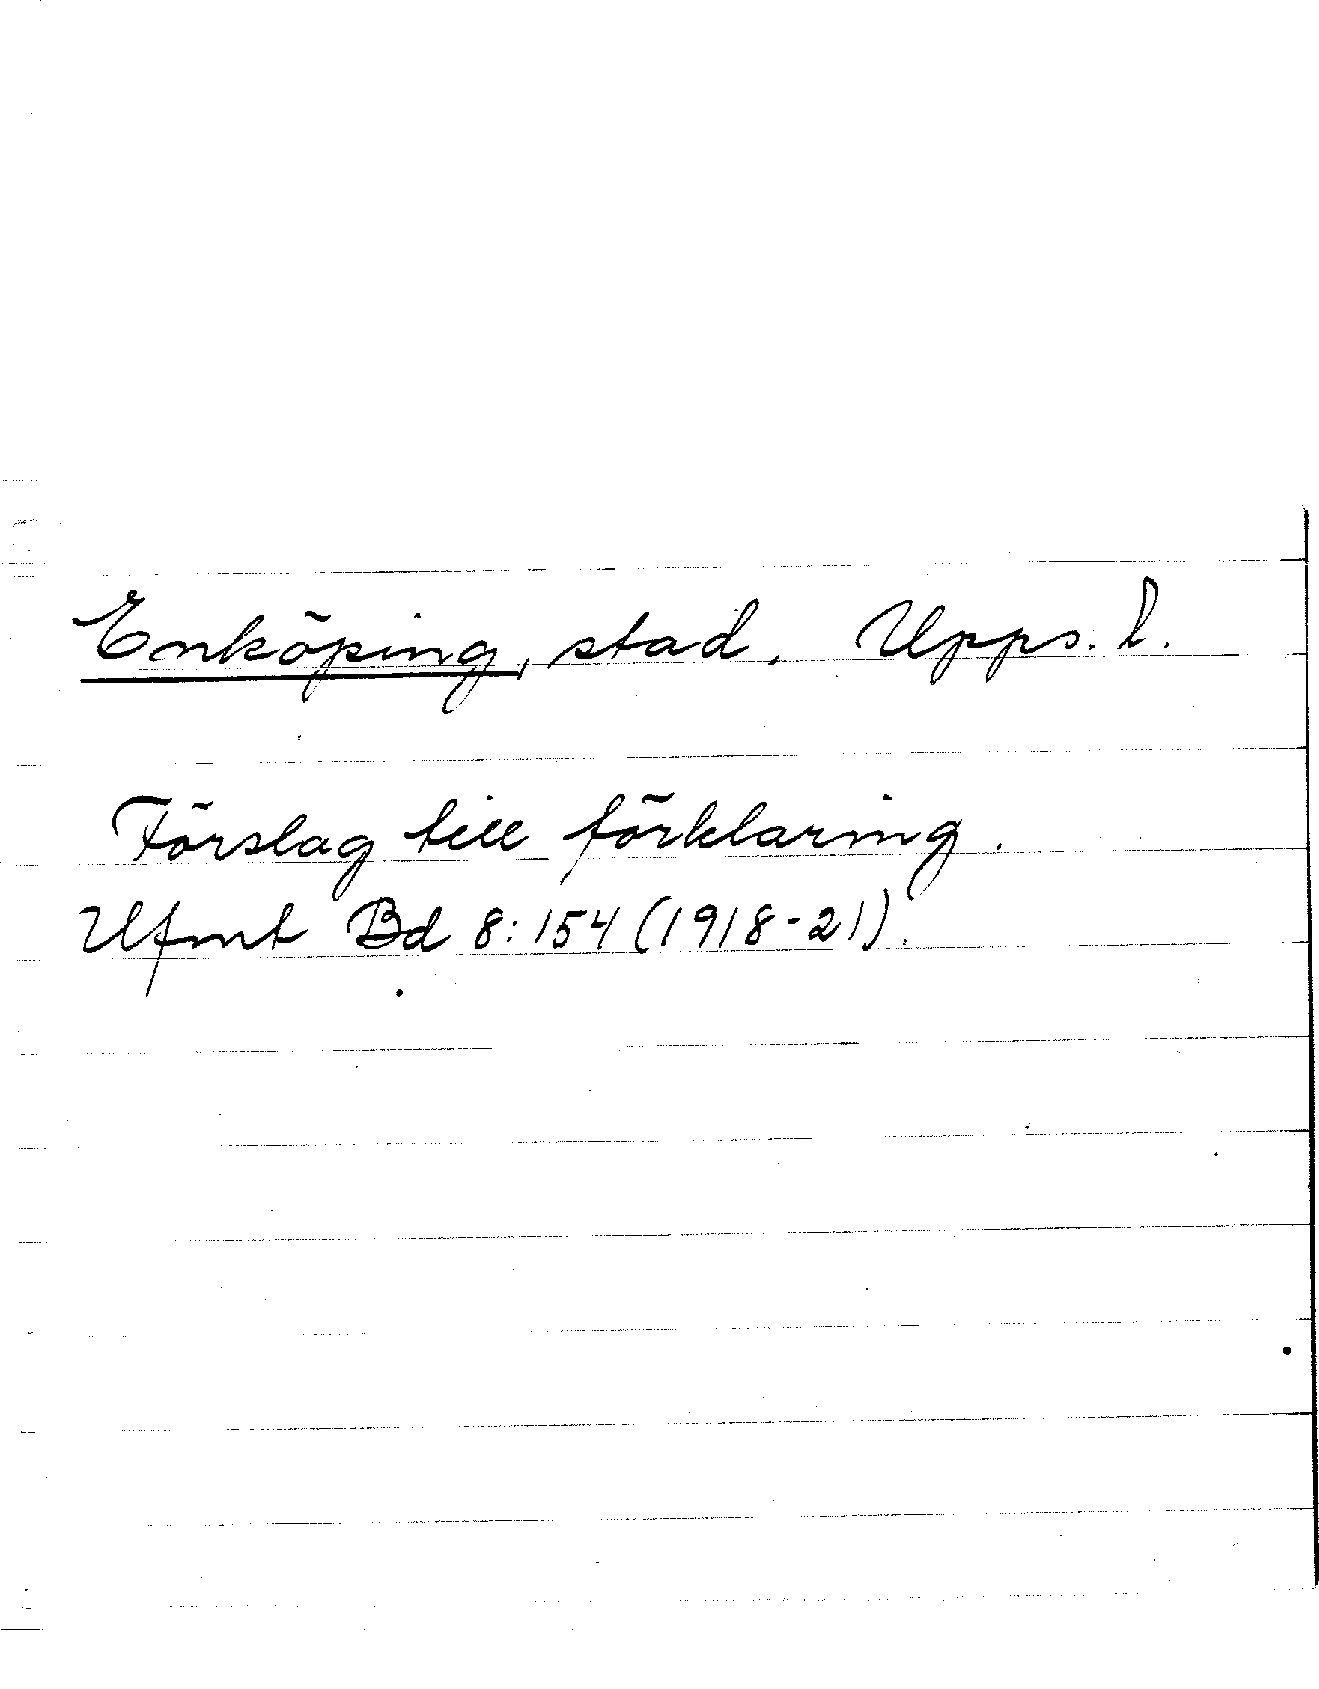 Enköping, stad. Upps. l.
Förslag till förklaring.
Ufmt Bd 8:154 (1918-21).